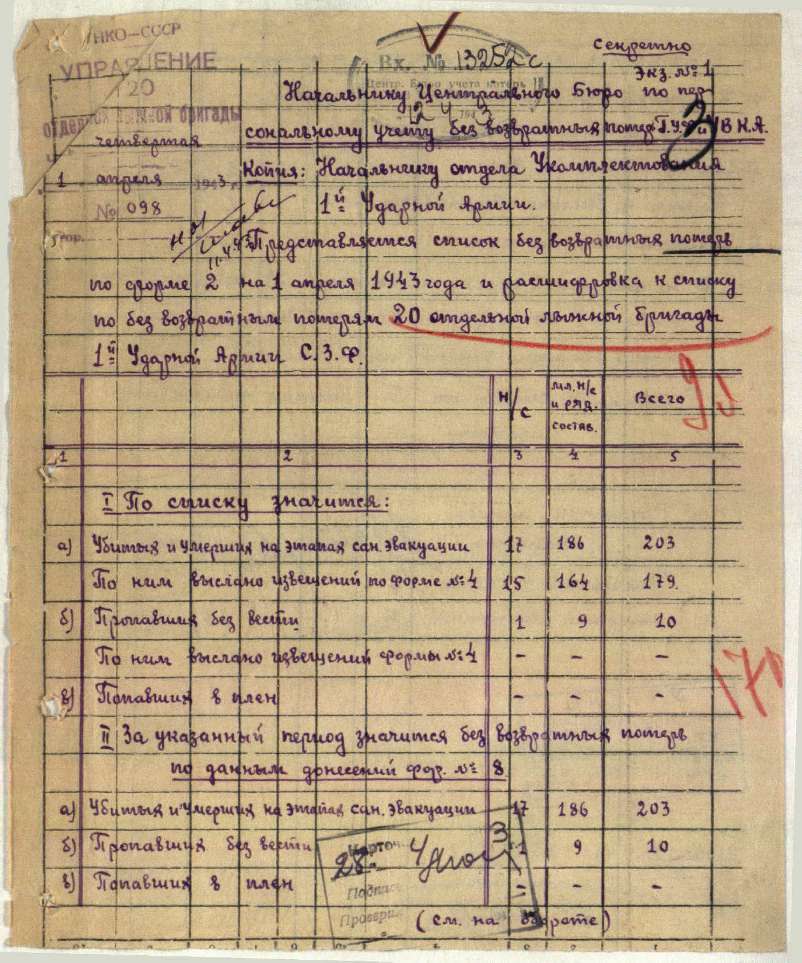 НКО-СССР
УПРАВЛЕНИЕ
20
отдельной лыжной бригады
четвертая
1 апреля 1943 г.
№ 098
Вх. № 13252с
Секретно
Экз. № 1
Начальнику Центрального Бюро по пер-
сональному учету без возвратных потерь Г.У.Ф и У В К.А.
Копия: Начальнику отдела Укомплектования
1й Ударной Армии.
Представляется список без возвратных потерь
по форме 2 на 1 апреля 1943 года и расшифровка к списку
по без возвратным потерям 20 отдельной лыжной бригады
1й Ударной Армии С.З.Ф.
Н/С мл. н/с и ряд. состав. Всего
1 2 3 4 5
I По списку значится:
а) Убитых и умерших на этапах сан. эвакуации 17 186 203
По ним выслано извещений по форме №4 15 164 179.
б) Пропавших без вести 1 9 10
По ним выслано извещений формы №4 - - -
в) Попавших в плен - - -
II За указанный период значится без возвратных потерь
по данным донесений фор. № 8
а) Убитых и умерших на этапах сан. эвакуации 17 186 203
б) Пропавших без вести 1 9 10
в) Попавших в плен - - -
(см. на обороте)